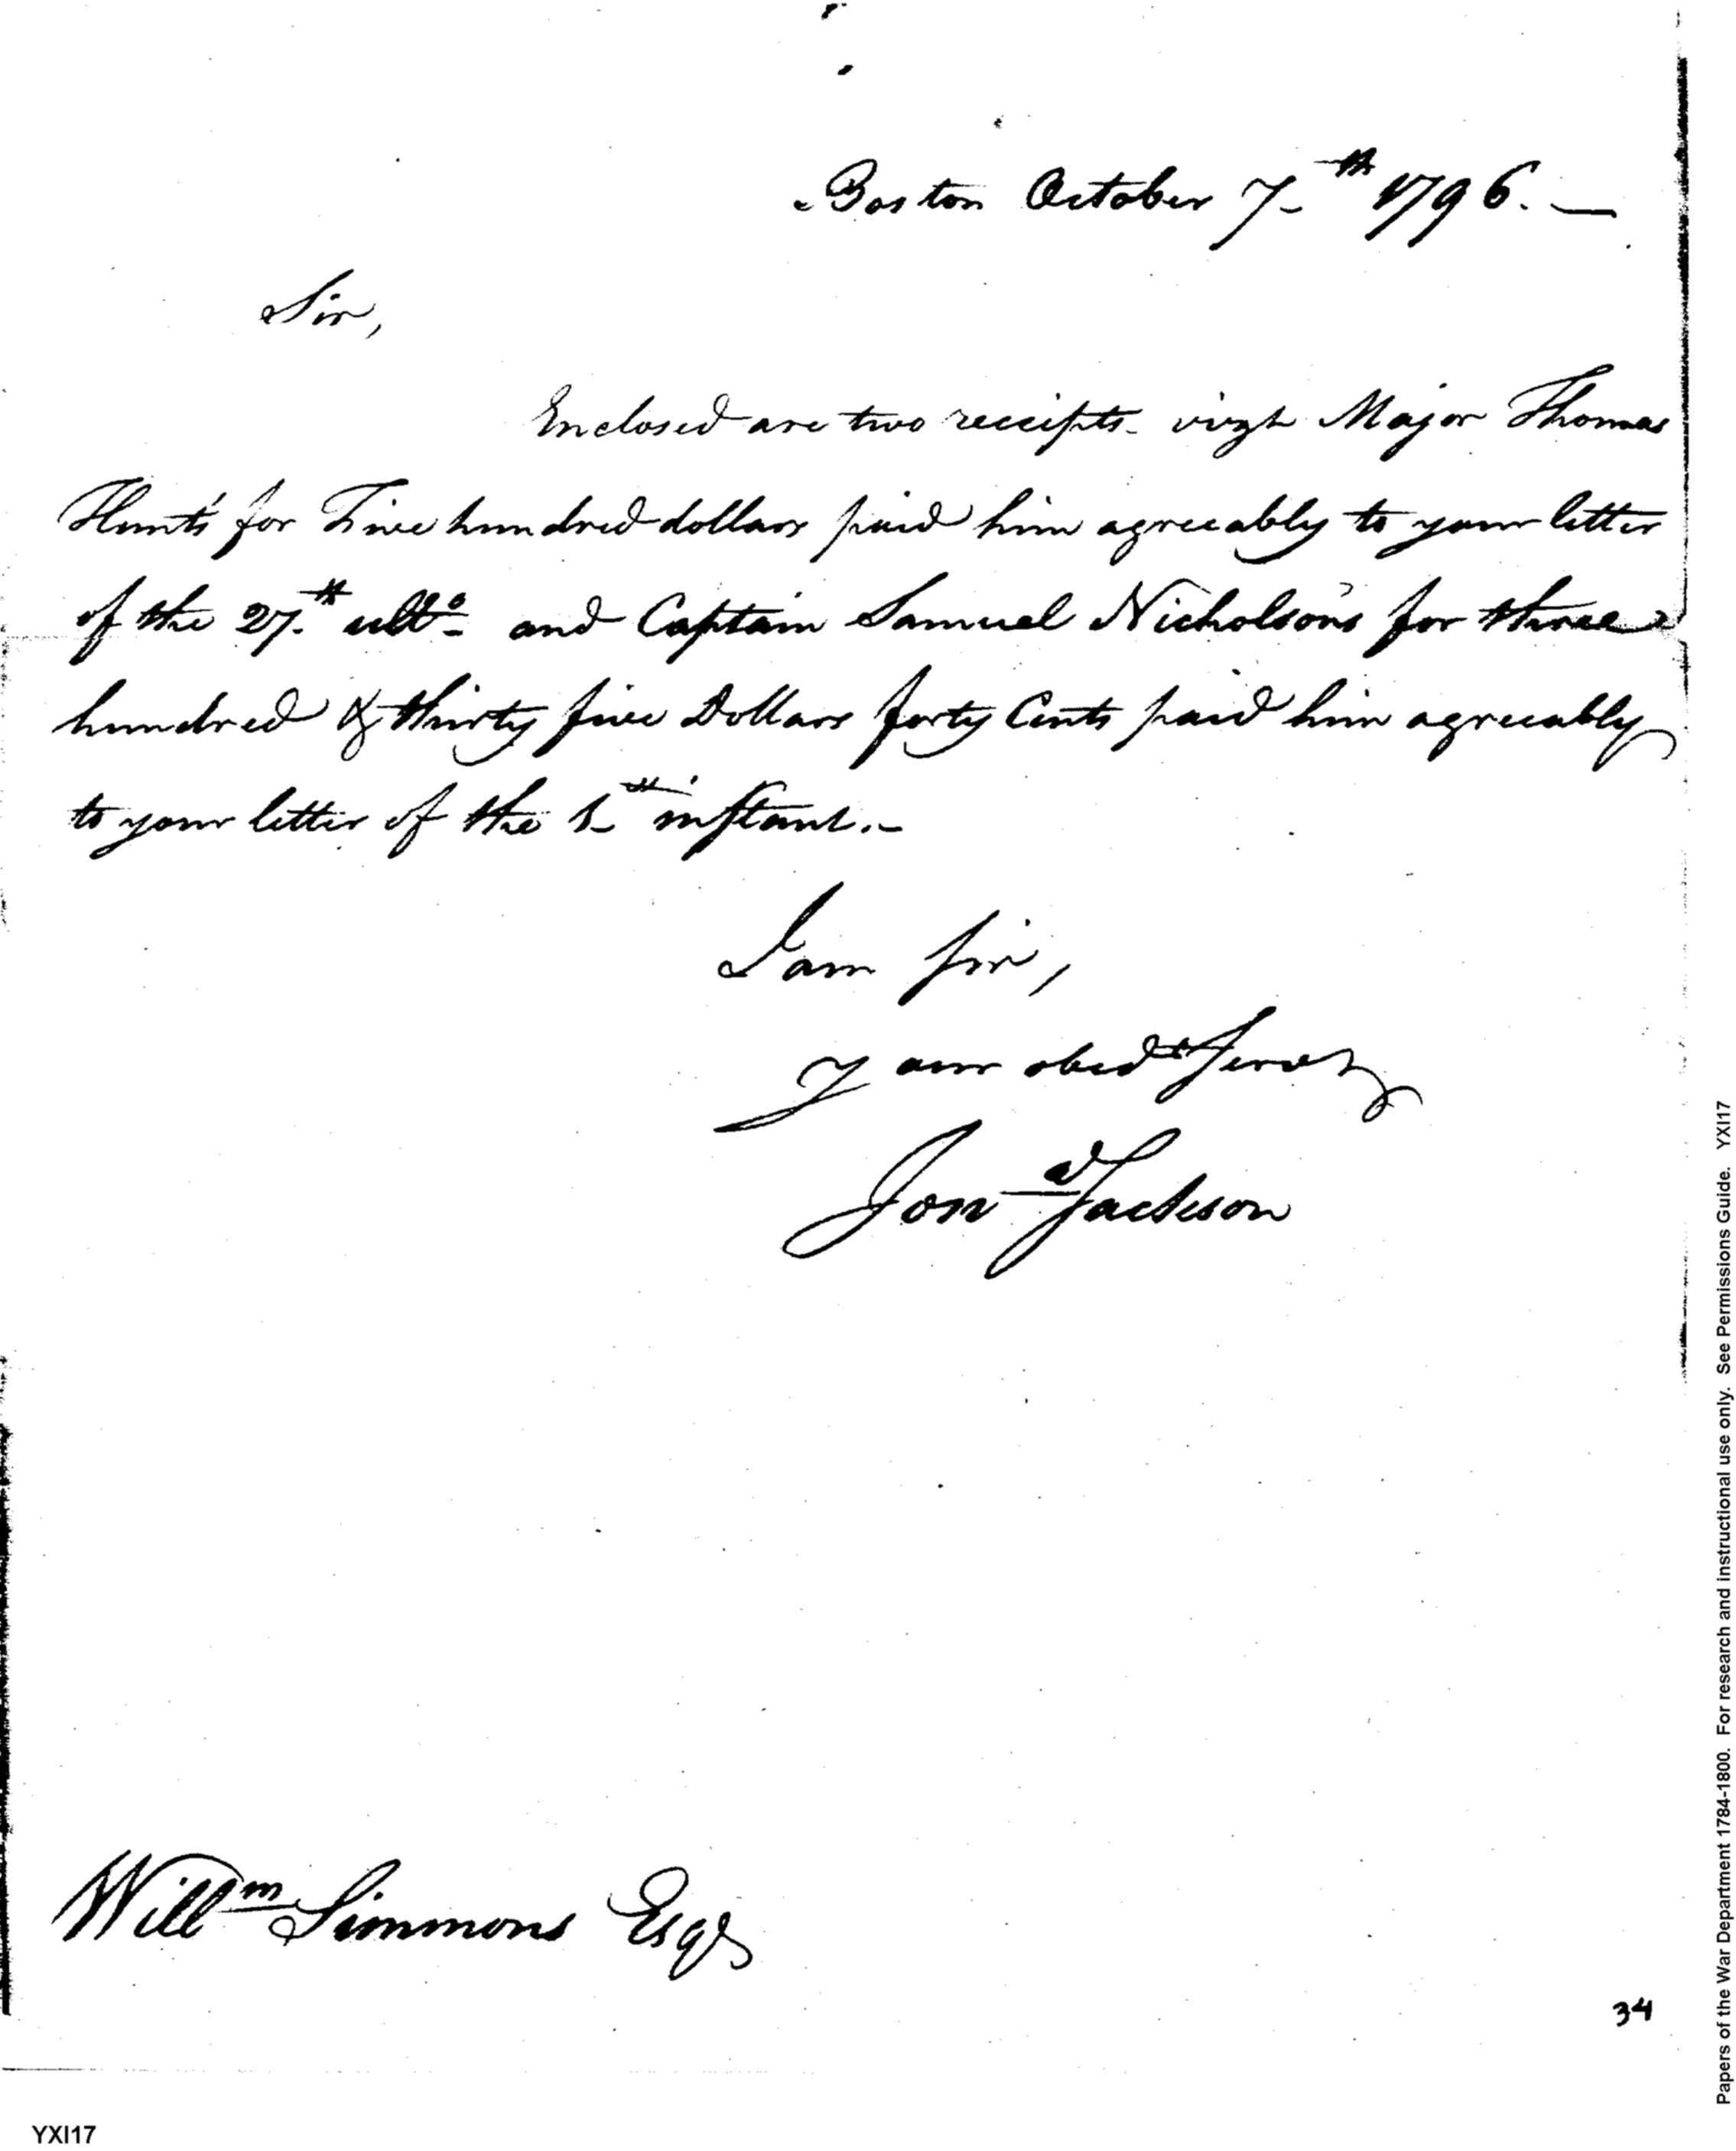 Boston October 7th 1796. —
Sir,
Enclosed are two receipts vizt Major Thomas
Hunt's for Five hundred dollars paid him agreeably to your letter
of the 27.th ulto. and Captain Samuel Nicholson's for three
hundred & thirty five Dollars forty Cents paid him agreeably
to your letter of the 1th instant.-
I am Sir,
Y our obedt Servt
Jona Jackson
Willm Simmons Esqr
34
YXI17
Papers of the War Department 1784-1800. For research and instructional use only. See Permissions Guide. YXI17